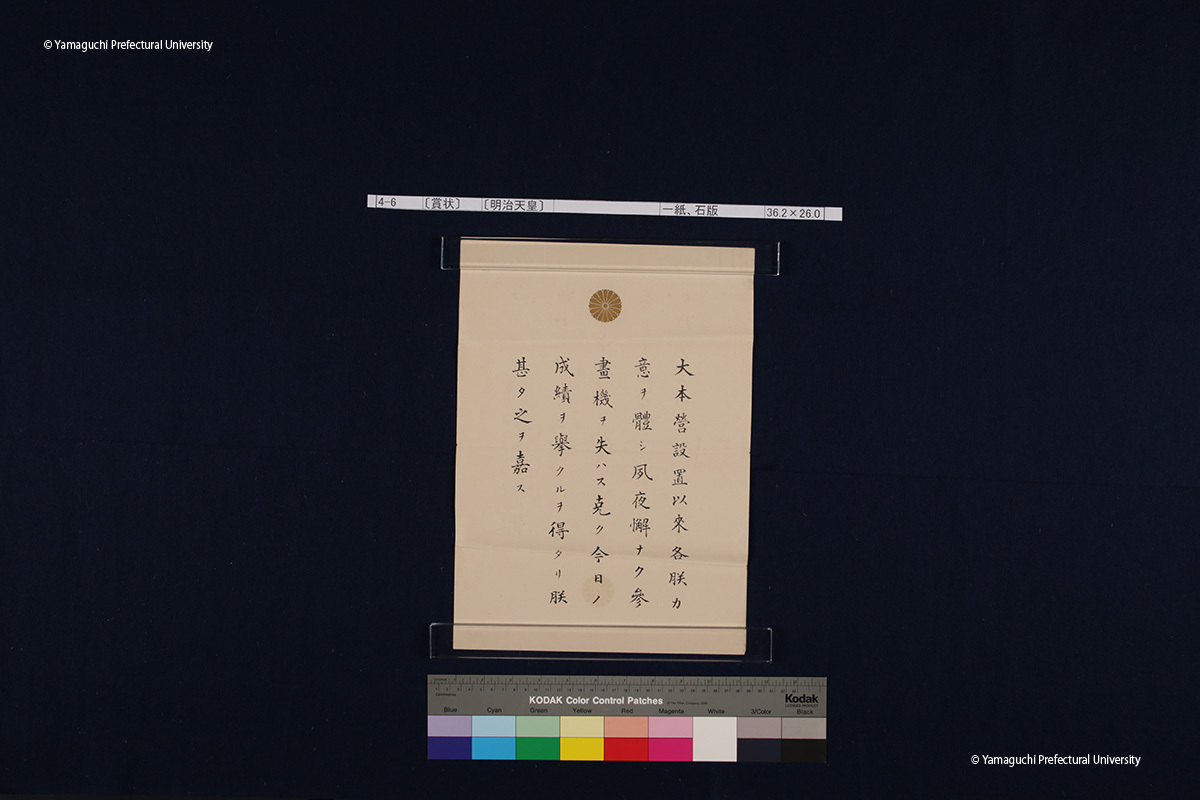 © Yamaguchi Prefectural University
4-6 〔賞状〕 〔明治天皇〕 一紙、石版 36.2×26.0
大本營設置以來各朕カ
意ヲ體シ夙夜懈ナク參
畫機ヲ失ハス克ク今日ノ
成績ヲ擧クルヲ得タリ朕
甚タ之ヲ嘉ス
KODAK Color Control Patches
Kodak
LICENSED PRODUCT
Blue Cyan Green Yellow Red Magenta White 3/Color Black
© Yamaguchi Prefectural University